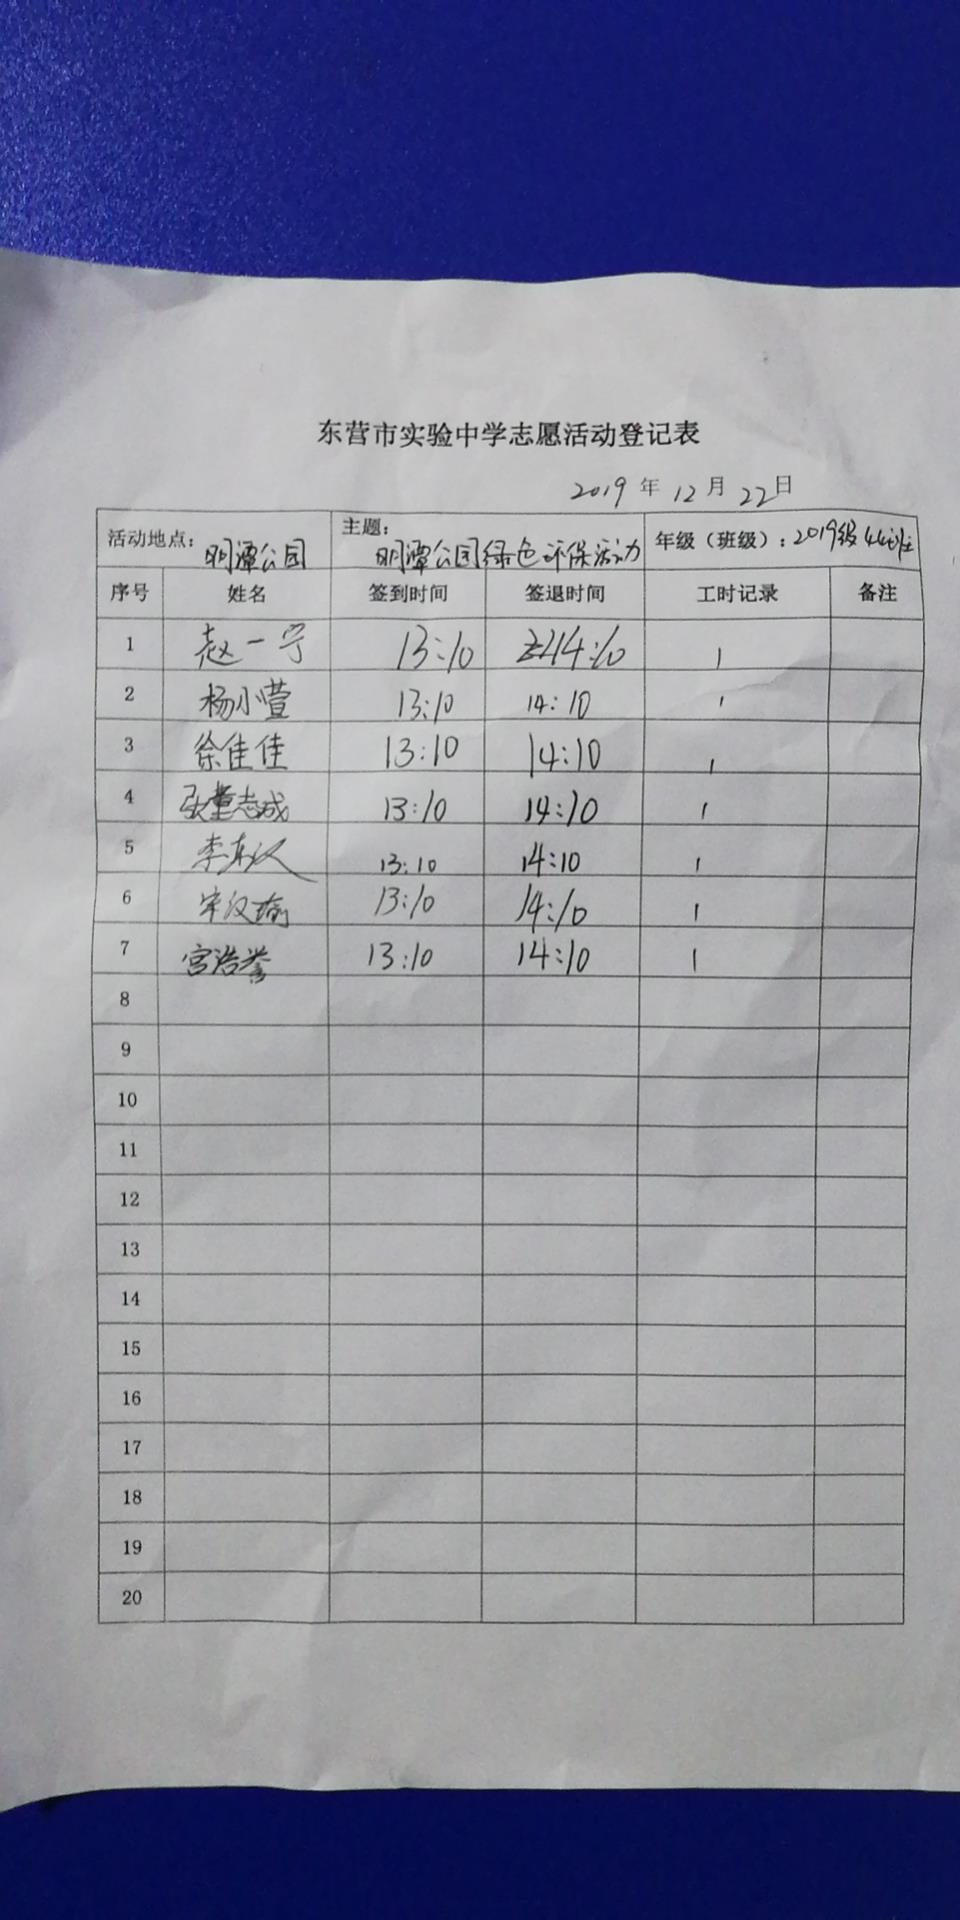 东营市实验中学志愿活动登记表
2019 年 12 月 22 日
活动地点：明潭公园 主题：明潭公园绿色环保活动 年级（班级）：2019级44班
序号 姓名 签到时间 签退时间 工时记录 备注
1 赵一宁 13:10 14:10 1
2 杨小萱 13:10 14:10 1
3 徐佳佳 13:10 14:10 1
4 张董志成 13:10 14:10 1
5 李东汉 13:10 14:10 1
6 宋汶瑜 13:10 14:10 1
7 宫浩誉 13:10 14:10 1
8
9
10
11
12
13
14
15
16
17
18
19
20